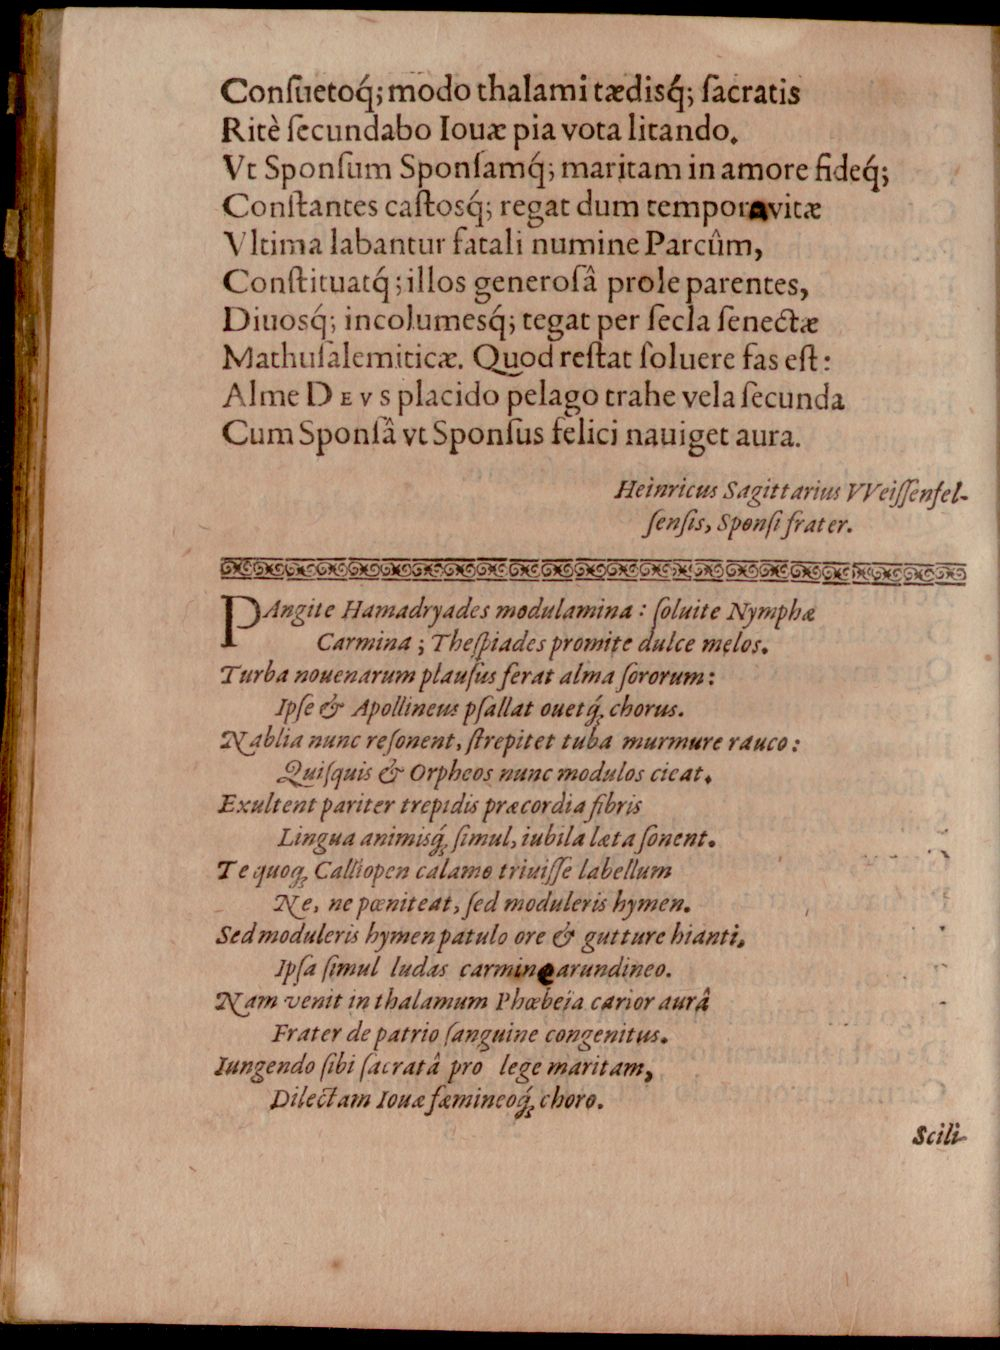 Conſuetoq́; modo thalami tædisq́; ſacratis
Ritè ſecundabo Iouæ pia vota litando.
Vt Sponſum Sponſamq́; maritam in amore fideq́;
Conſtantes caſtosq́; regat dum tempora vitæ
Vltima labantur fatali numine Parcûm,
Conſtituatq́; illos generoſâ prole parentes,
Diuosq́; incolumesq́; tegat per ſecla ſenectæ
Mathuſalemiticæ. Quod reſtat ſoluere fas eſt:
Alme DEVS placido pelago trahe vela ſecunda
Cum Sponſâ vt Sponſus felici nauiget aura.
Heinricus Sagittarius VVeiſſenfel-
ſenſis, Sponſi frater.
PAngite Hamadryades modulamina: ſoluite Nymphæ
Carmina; Theſpiades promite dulce melos.
Turba nouenarum plauſus ferat alma ſororum:
Ipſe & Apollineus pſallat ouetq́; chorus.
Nablia nunc reſonent, ſtrepitet tuba murmure rauco:
Quiſquis & Orpheos nunc modulos cieat.
Exultent pariter trepidis præcordia fibris
Lingua animisq́; ſimul, iubila læta ſonent.
Te quoq; Calliopen calamo triuiſſe labellum
Ne, ne pœniteat, ſed moduleris hymen.
Sed moduleris hymen patulo ore & gutture hianti,
Ipſa ſimul ludas carmine arundineo.
Nam venit in thalamum Phœbeia carior aurâ
Frater de patrio ſanguine congenitus.
Iungendo ſibi ſacratâ pro lege maritam,
Dilectam Iouæ fæmineoq́; choro.
Scili-